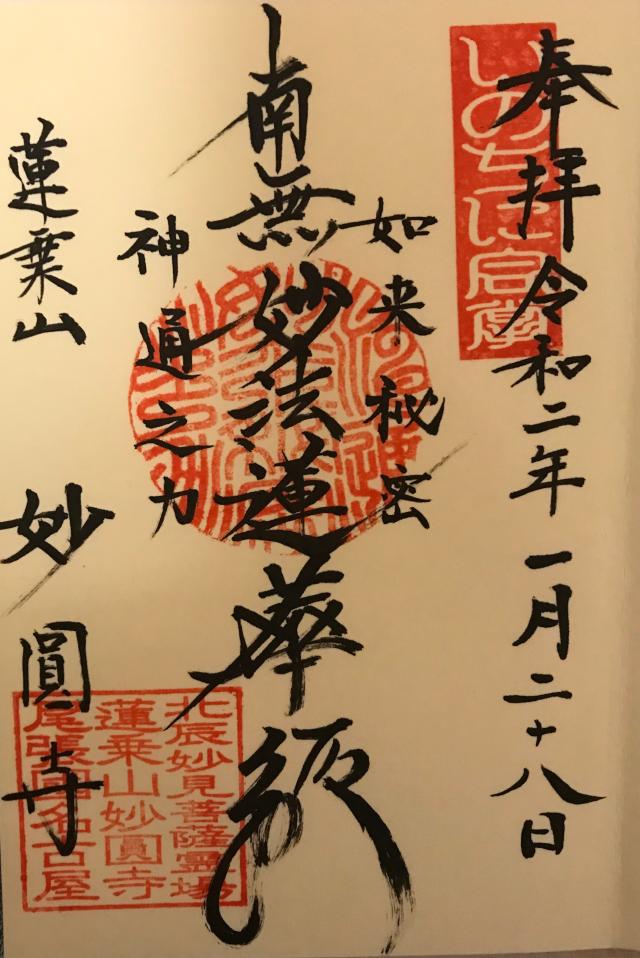 奉拝 令和二年一月二十八日
いのちに合掌
如来秘密
南無妙法蓮華経
神通之力
蓮乗山 妙圓寺
北辰妙見菩薩霊場
蓮乗山妙圓寺
尾張國名古屋